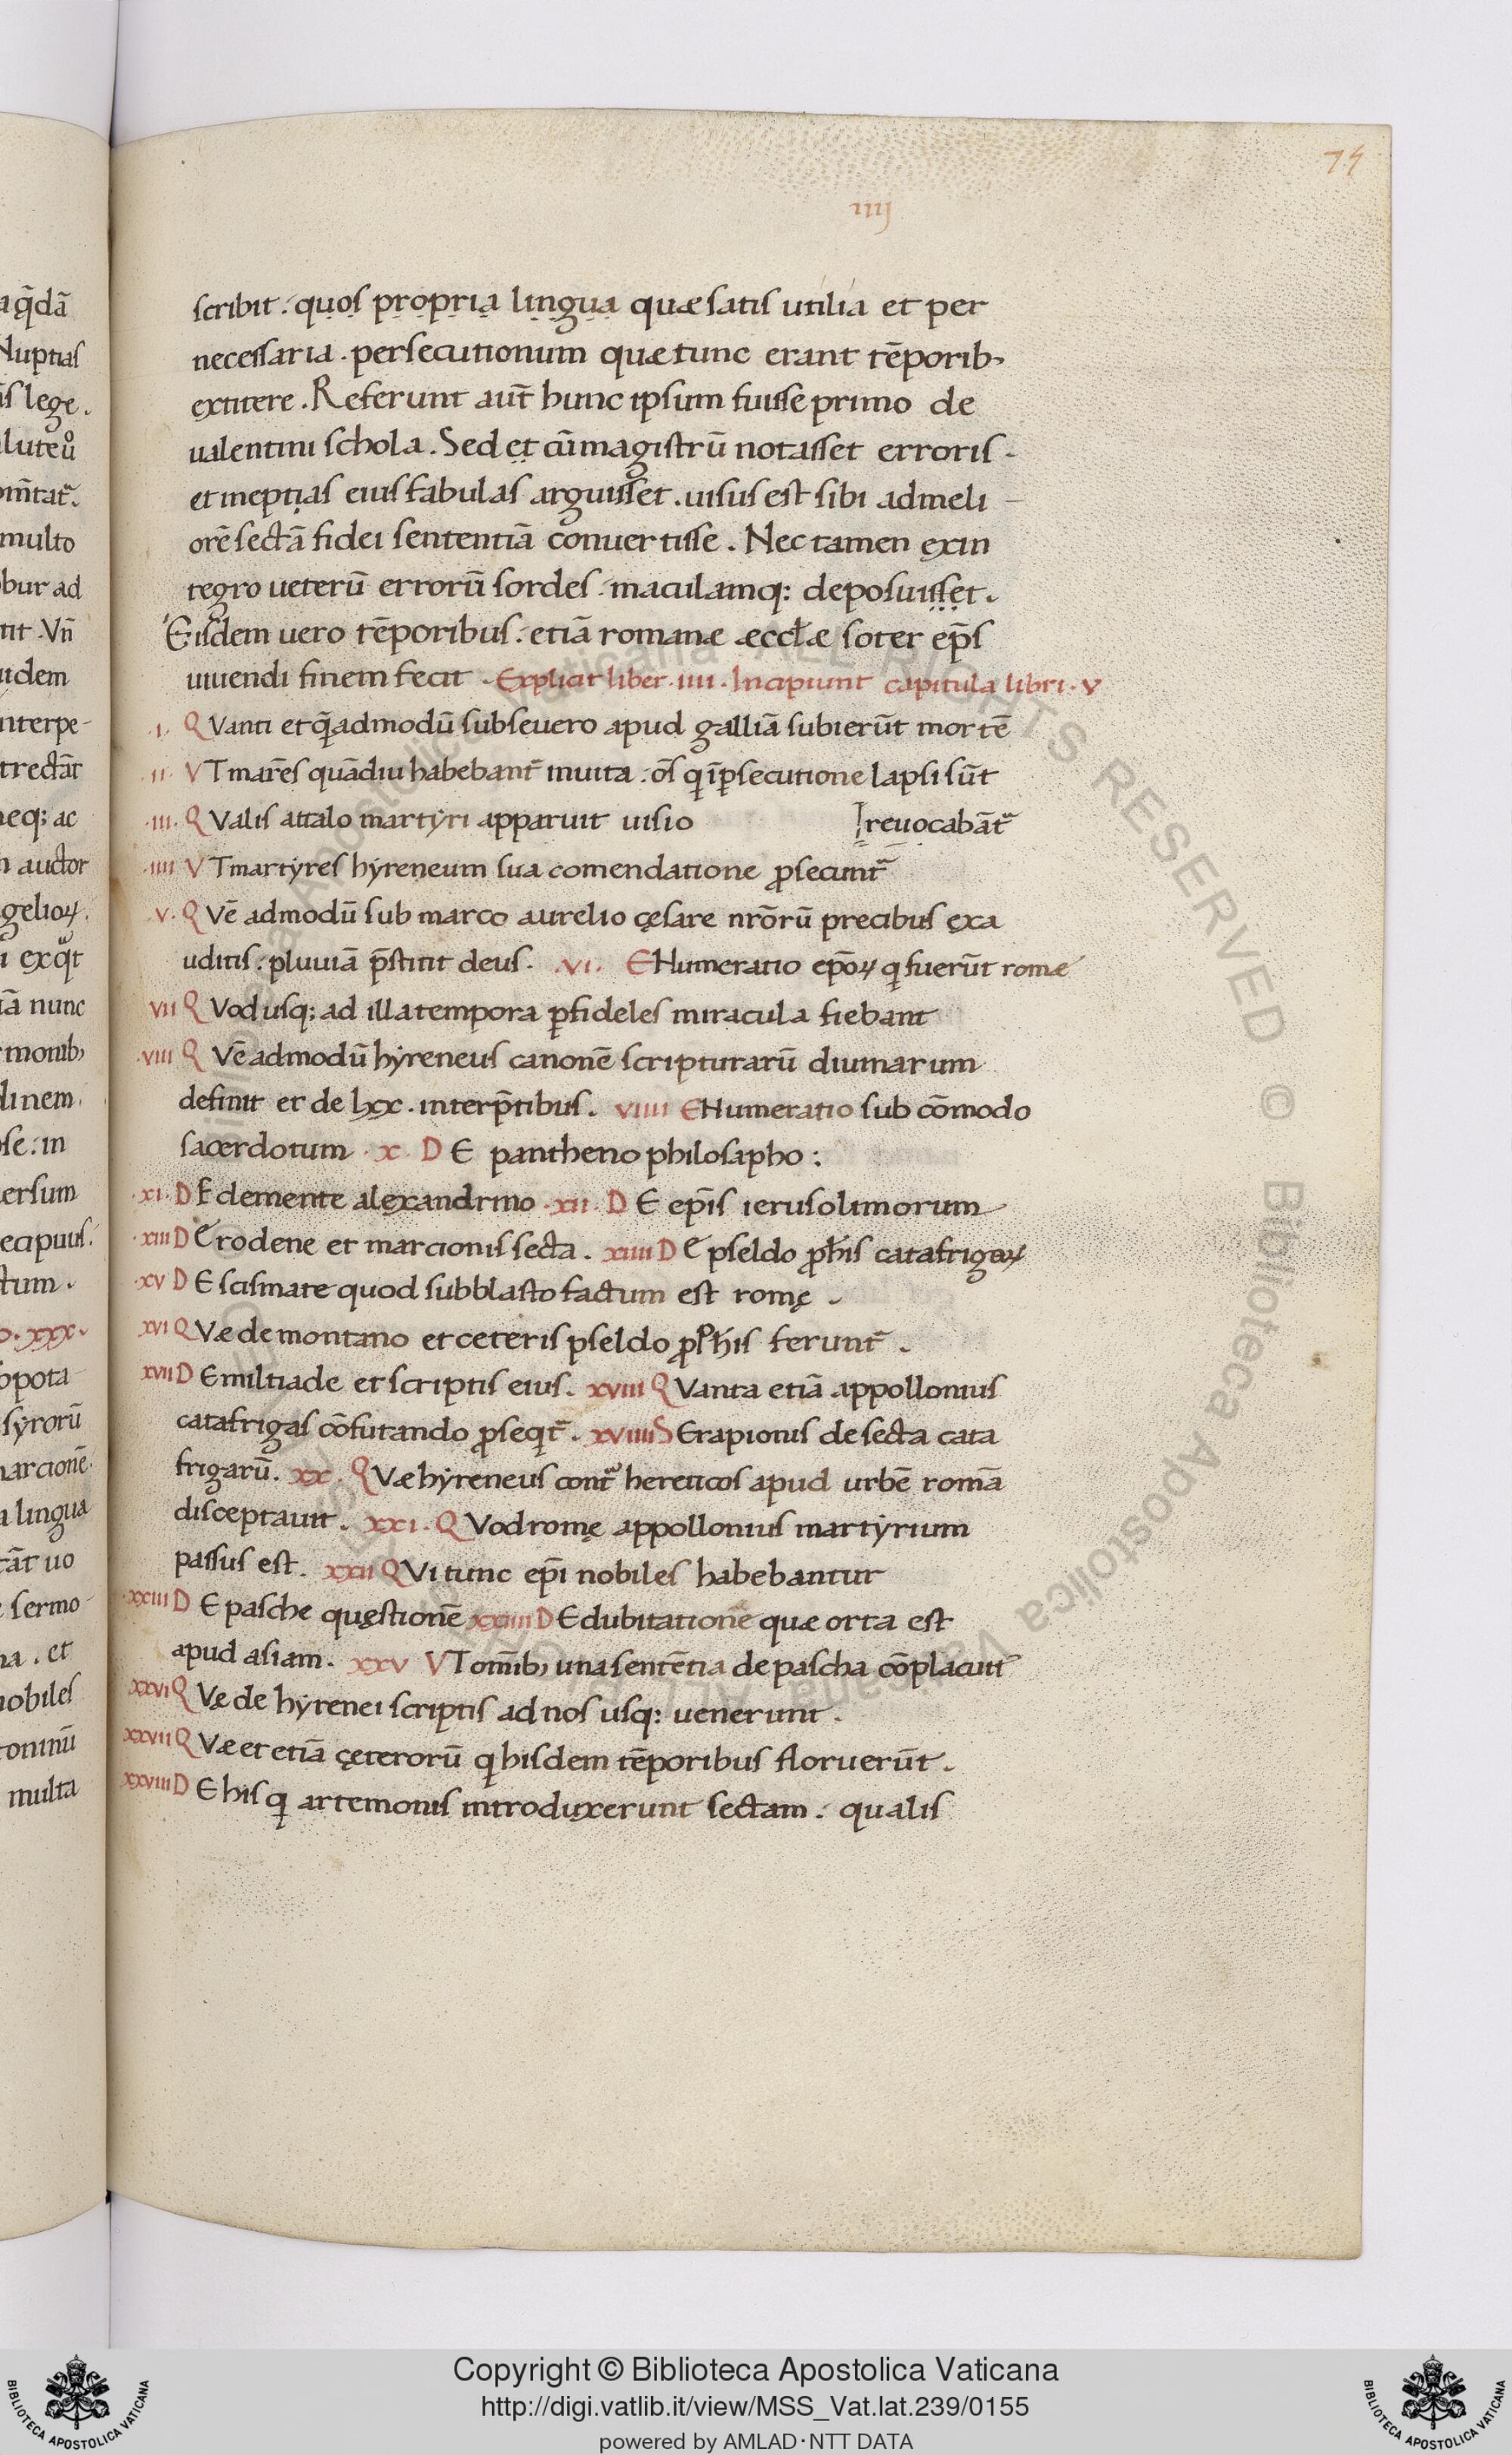 75
iiij
scribit. quos propria lingua quæ satis utilia et per
necessaria. persecutionum quæ tunc erant tēporib;
extitere. Referunt aut̄ hunc ipsum fuisse primo de
ualentini schola. Sed et cū magistrū notasset erroris.
et ineptias eius fabulas arguisset. uisus est sibi ad meli
orē sectā fidei sententiā conuertisse. Nec tamen ex in
tegro ueterū errorū sordes. maculamq: deposuisset.
Eisdem uero tēporibus. etiā romanæ æccłæ soter ep̄s
uiuendi finem fecit. Explicit liber. iiii. Incipiunt capitula libri. v
.i. QVanti et qēadmodū sub seuero apud galliā subierūt mortē
.ii. VT mar̄es quādiu habebant̄ in uita. oīs q̄ ī ꝑsecutione lapsi sūt
.iii. QValis attalo martyri apparuit uisio reuocabāt̄
.iiii VT martyres hyreneum sua comendatione ꝓsecunt̄
.v. QVē admodū sub marco aurelio cęsare nr̄orū precibus exa
uditis. pluuiā p̄stitit deus. .vi. ENumeratio ep̄oꝝ q fuerūt romæ
vii QVod usq; ad illa tempora ꝑ fideles miracula fiebant
.viii QVē admodū hyreneus canonē scripturarū diuinarum
definit et de lxx. interp̄tibus. viiii ENumeratio sub cōmodo
sacerdotum. x. DE pantheno philosapho:
.xi. DE clemente alexandrino .xii. DE ep̄is ierusolimorum
.xiii DE rodene et marcionis secta. xiiii DE pseldo ꝓph̄is catafrigaꝝ
.xv DE scismate quod sub blasto factum est romę.
xvi QVæ de montano et ceteris pseldo ꝓph̄is ferunt̄.
xvii DE miltiade et scriptis eius. xviii QVanta etiā appollonius
catafrigas cōfutando ꝓseqt̄. xviiii SErapionis de secta cata
frigarū. xx. QVæ hyreneus cont̄ hereticos apud urbē romā
disceptauit. xxi. QVod romę appollonius martyrium
passus est. xxii QVi tunc ep̄i nobiles habebantur
.xxiii DE pasche questionē xxiiii DE dubitatione quæ orta est
apud asiam. xxv VT om̄ib; una sentētia de pascha cōplacuit
xxvi QVæ de hyrenei scriptis ad nos usq: uenerunt.
xxvii QVæ et etiā çeterorū q hisdem tēporibus floruerūt.
xxviii DE his q artemonis introduxerunt sectam. qualis
Copyright © Biblioteca Apostolica Vaticana
http://digi.vatlib.it/view/MSS_Vat.lat.239/0155
powered by AMLAD·NTT DATA